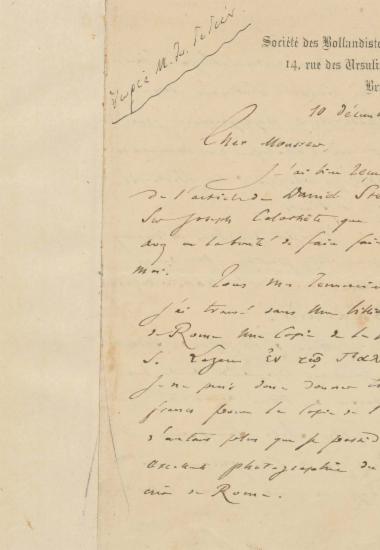 Société des Bollandiste
14, rue des Ursuli
Br
10 décem
Cher Monsieur,
J'ai bien reçu
de l'article de David
Sur Joseph que
avez eu la bonté de faire
moi.
Vous me
j'ai trouvé dans une
de Rome une copie de la
S. Lazare Ἐν
je ne puis donc donner
francs pour la copie de
d'autant plus que je possède
excellente photographie du
de Rome.